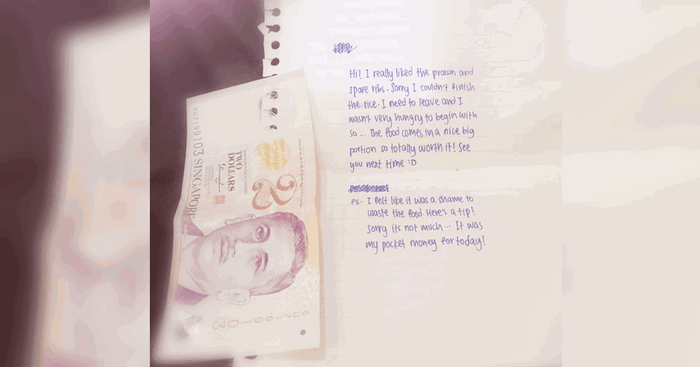 Hi! I really liked the prawn and
spare ribs. Sorry I couldn't finish
the rice. I need to leave and I
wasn't very hungry to begin with
so... The food comes in a nice big
portion so totally worth it! See
you next time :D
PS- I felt like it was a shame to
waste the food. Here's a tip!
Sorry its not much... It was
my pocket money for today!
TWO
DOLLARS
2
SINGAPORE